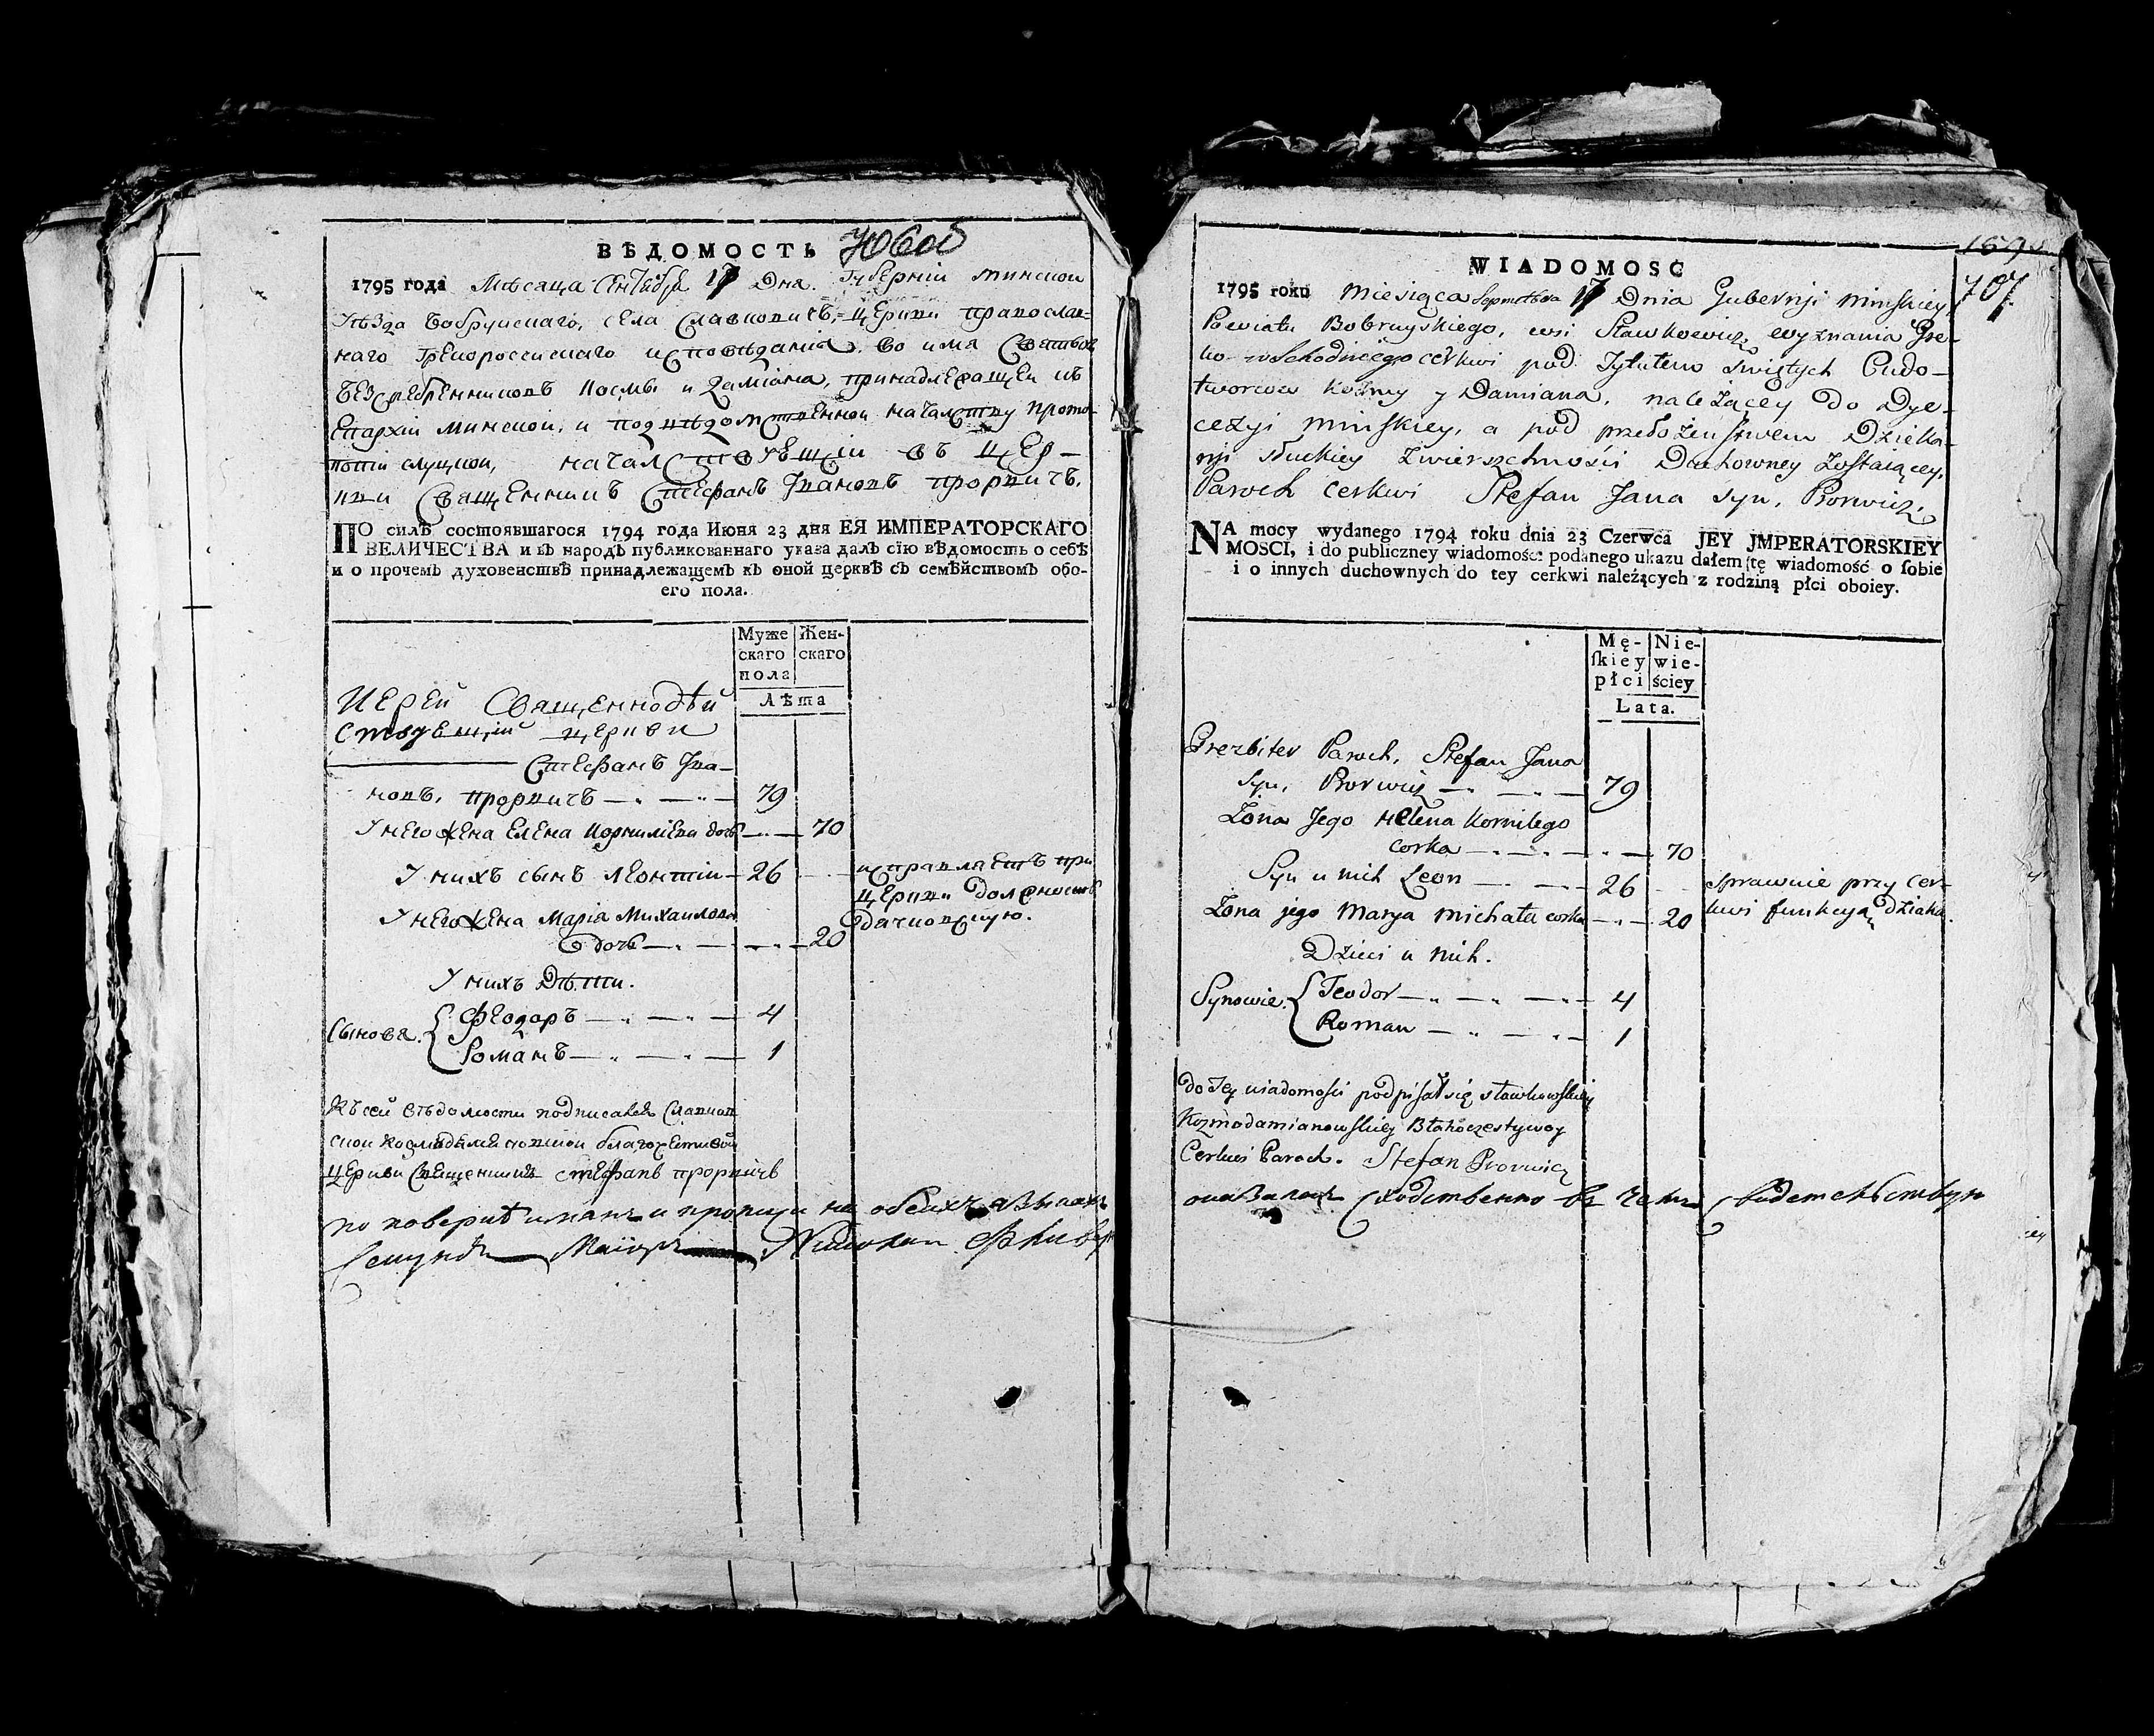 ВѢДОМОСТЬ
1795 года Мѣсаца Сентебра 17 Дна. Губерніи Минской
Уѣзда Бобруйскаго, села Славковичъ, церкви православ=
наго Грекороссійскаго исповѣданія. во имя Святыхъ
Безсребренниковъ Космы и Даміана, принадлежащей къ
Епархіи Минской, и подъ вѣдомственной началству прото-
попіи слуцкой, началствующій въ цер-
кви Священникъ Стефанъ Івановъ Прорвичъ.
ПО силѣ состоявшагося 1794 года Июня 23 дня ЕЯ ИМПЕРАТОРСКАГО
ВЕЛИЧЕСТВА и въ народъ публикованнаго указа далъ сїю вѣдомость о себѣ
и о прочемъ духовенствѣ принадлежащемъ къ оной церквѣ съ семѣйствомъ обо-
его пола.
Муже скаго пола
Жен- скаго
Лѣта
Иерей Священнодѣй
ствующій церкви
Стефанъ Іва-
новъ, Прорвичъ 79
У него жена Елена Корнилиева дочь 70
У нихъ сынъ Леонтій 26 исправляетъ при
церкви должность
дячковскую.
У него жена Марія Михаилова
дочь 20
У нихъ Дѣти.
Сыновя. { Феодоръ 4
Романъ 1
Къ сей вѣдомости подписался Славков
ской Космодаміановской благочестивой
церкви Священникъ Стефанъ Прорвичъ
по поверке
Секундъ Маіоръ
WIADOMOSC
1795 roku miesiąca Septembra 17 Dnia Gubernji Minskiey
Powiatu Bobruyskiego, wsi Sławkowicz, wyznania Gre-
ko-wschodniego cerkwi pod Tytułem świętych Cudo-
tworcow Kozmy y Damiana, należącey do Dye-
cezyi Minskiey, a pod przełożeństwem Dzieka-
nji słuckiey zwierszchności Duchowney zostaiącey.
Paroch cerkwi Stefan Jana syn, Prorwicz.
707
NA mocy wydanego 1794 roku dnia 23 Czerwca JEY JMPERATORSKIEY
MOSCI, i do publiczney wiadomości podanego ukazu dałem tę wiadomość o sobie
i o innych duchownych do tey cerkwi należących z rodziną płci oboiey.
Mę- skiey płci
Nie- wie- ściey
Lata.
Prezbiter Paroch, Stefan Jana
syn, Prorwicz 79
Zona Jego Helena Kornilego
corka 70
Syn u nich Leon 26 sprawuie przy cer-
kwi funkcyą dziaka.
Zona jego Marya Michała corka 20
Dzieci u nich.
Synowie. { Teodor 4
Roman 1
do tey wiadomości podpisał się sławkowskiey
Kozmodamianowskiey Błahoczestywoy
Cerkwi Paroch. Stefan Prorwicz
сходственно въ чемъ свидетельствую